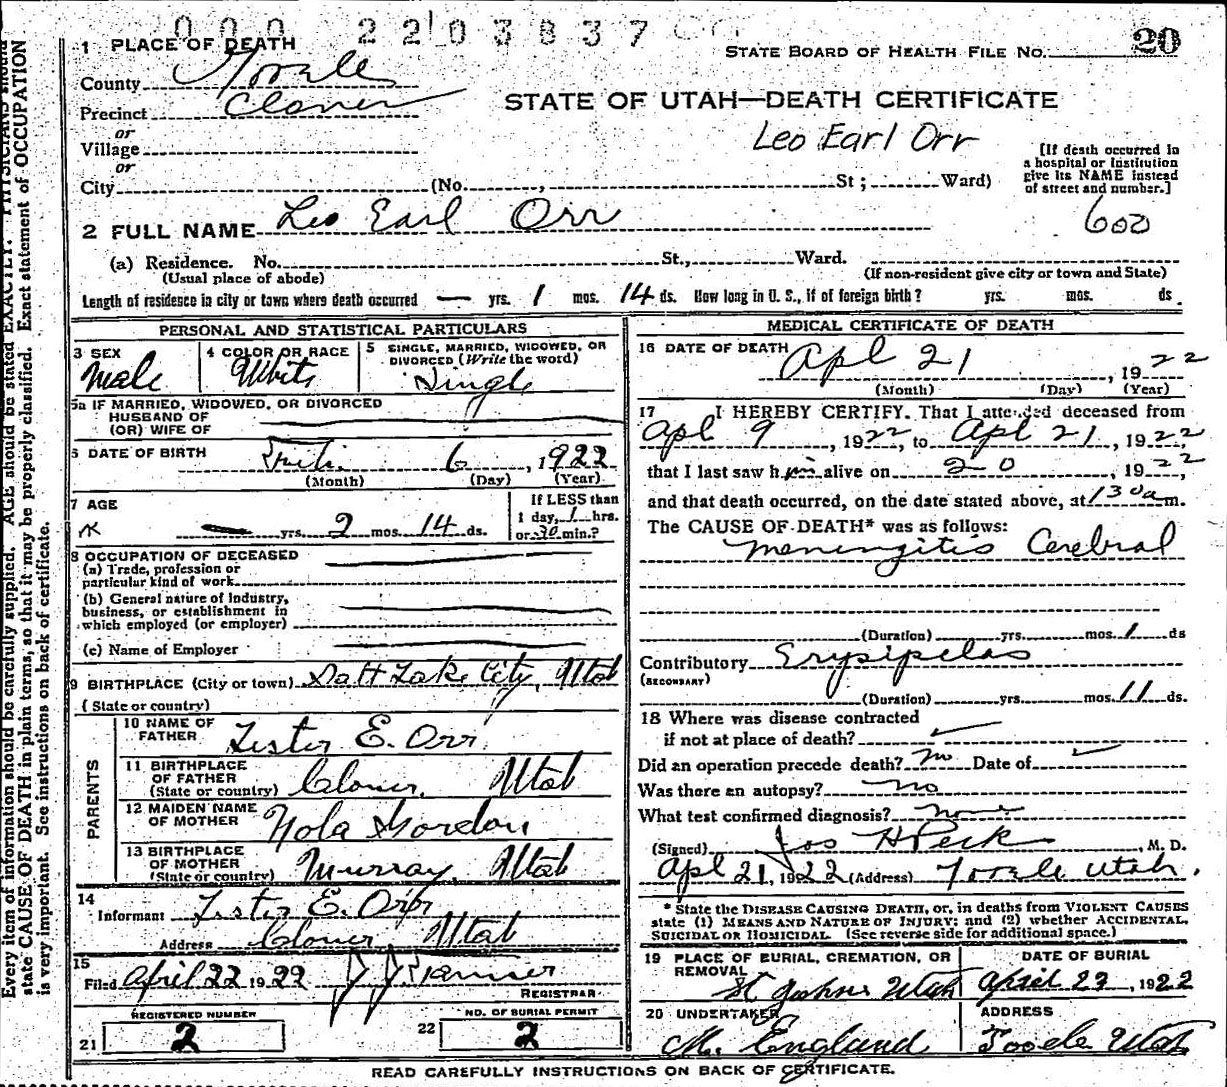 000 2203837
1 PLACE OF DEATH
STATE BOARD OF HEALTH FILE NO. 20
County Tooele
Precinct Clover
STATE OF UTAH—DEATH CERTIFICATE
or
Village
Leo Earl Orr
or
City (No. , St ; Ward)
[If death occurred in
a hospital or institution
give its NAME instead
of street and number.]
2 FULL NAME Leo Earl Orr
600
(a) Residence. No. St., Ward.
(Usual place of abode) (If non-resident give city or town and State)
Length of residence in city or town where death occurred — yrs. 1 mos. 14 ds. How long in U. S., if of foreign birth? yrs. mos. ds.
PERSONAL AND STATISTICAL PARTICULARS
3 SEX
Male
4 COLOR OR RACE
White
5 SINGLE, MARRIED, WIDOWED, OR
DIVORCED (Write the word)
Single
5a IF MARRIED, WIDOWED, OR DIVORCED
HUSBAND OF
(OR) WIFE OF
6 DATE OF BIRTH 6, 1922
(Month) (Day) (Year)
7 AGE
— yrs. 2 mos. 14 ds.
If LESS than
1 day, 1 hrs.
or 30 min.?
8 OCCUPATION OF DECEASED
(a) Trade, profession or
particular kind of work
(b) General nature of industry,
business, or establishment in
which employed (or employer)
(c) Name of Employer
9 BIRTHPLACE (City or town) Salt Lake City, Utah
(State or country)
PARENTS
10 NAME OF
FATHER Lester E. Orr
11 BIRTHPLACE
OF FATHER
(State or country) Clover, Utah
12 MAIDEN NAME
OF MOTHER Nola Gordon
13 BIRTHPLACE
OF MOTHER
(State or country) Murray, Utah
14
Informant Lester E. Orr
Address Clover Utah
15
Filed April 22 1922
REGISTRAR
REGISTERED NUMBER
21 2
NO. OF BURIAL PERMIT
22 2
MEDICAL CERTIFICATE OF DEATH
16 DATE OF DEATH Apl 21, 1922
(Month) (Day) (Year)
17 I HEREBY CERTIFY. That I attended deceased from
Apl 9, 1922, to Apl 21, 1922,
that I last saw him alive on 20, 1922
and that death occurred, on the date stated above, at 130am.
The CAUSE OF DEATH* was as follows:
Meningitis Cerebral
(Duration) yrs. mos. 1 ds
Contributory Erysipelas
(SECONDARY)
(Duration) yrs. mos. 11 ds.
18 Where was disease contracted
if not at place of death? ✓
Did an operation precede death? no Date of ✓
Was there an autopsy? no
What test confirmed diagnosis? none
(Signed) Jos H Peck, M. D.
Apl 21, 1922 (Address) Tooele Utah.
* State the DISEASE CAUSING DEATH, or, in deaths from VIOLENT CAUSES
state (1) MEANS AND NATURE OF INJURY; and (2) whether ACCIDENTAL,
SUICIDAL OR HOMICIDAL. (See reverse side for additional space.)
19 PLACE OF BURIAL, CREMATION, OR
REMOVAL
St Johns Utah
DATE OF BURIAL
April 23, 1922
20 UNDERTAKER
M. England
ADDRESS
Tooele Utah
READ CAREFULLY INSTRUCTIONS ON BACK OF CERTIFICATE.
Every item of information should be carefully supplied. AGE should be stated EXACTLY. PHYSICIANS should
state CAUSE OF DEATH in plain terms, so that it may be properly classified. Exact statement of OCCUPATION
is very important. See instructions on back of certificate.